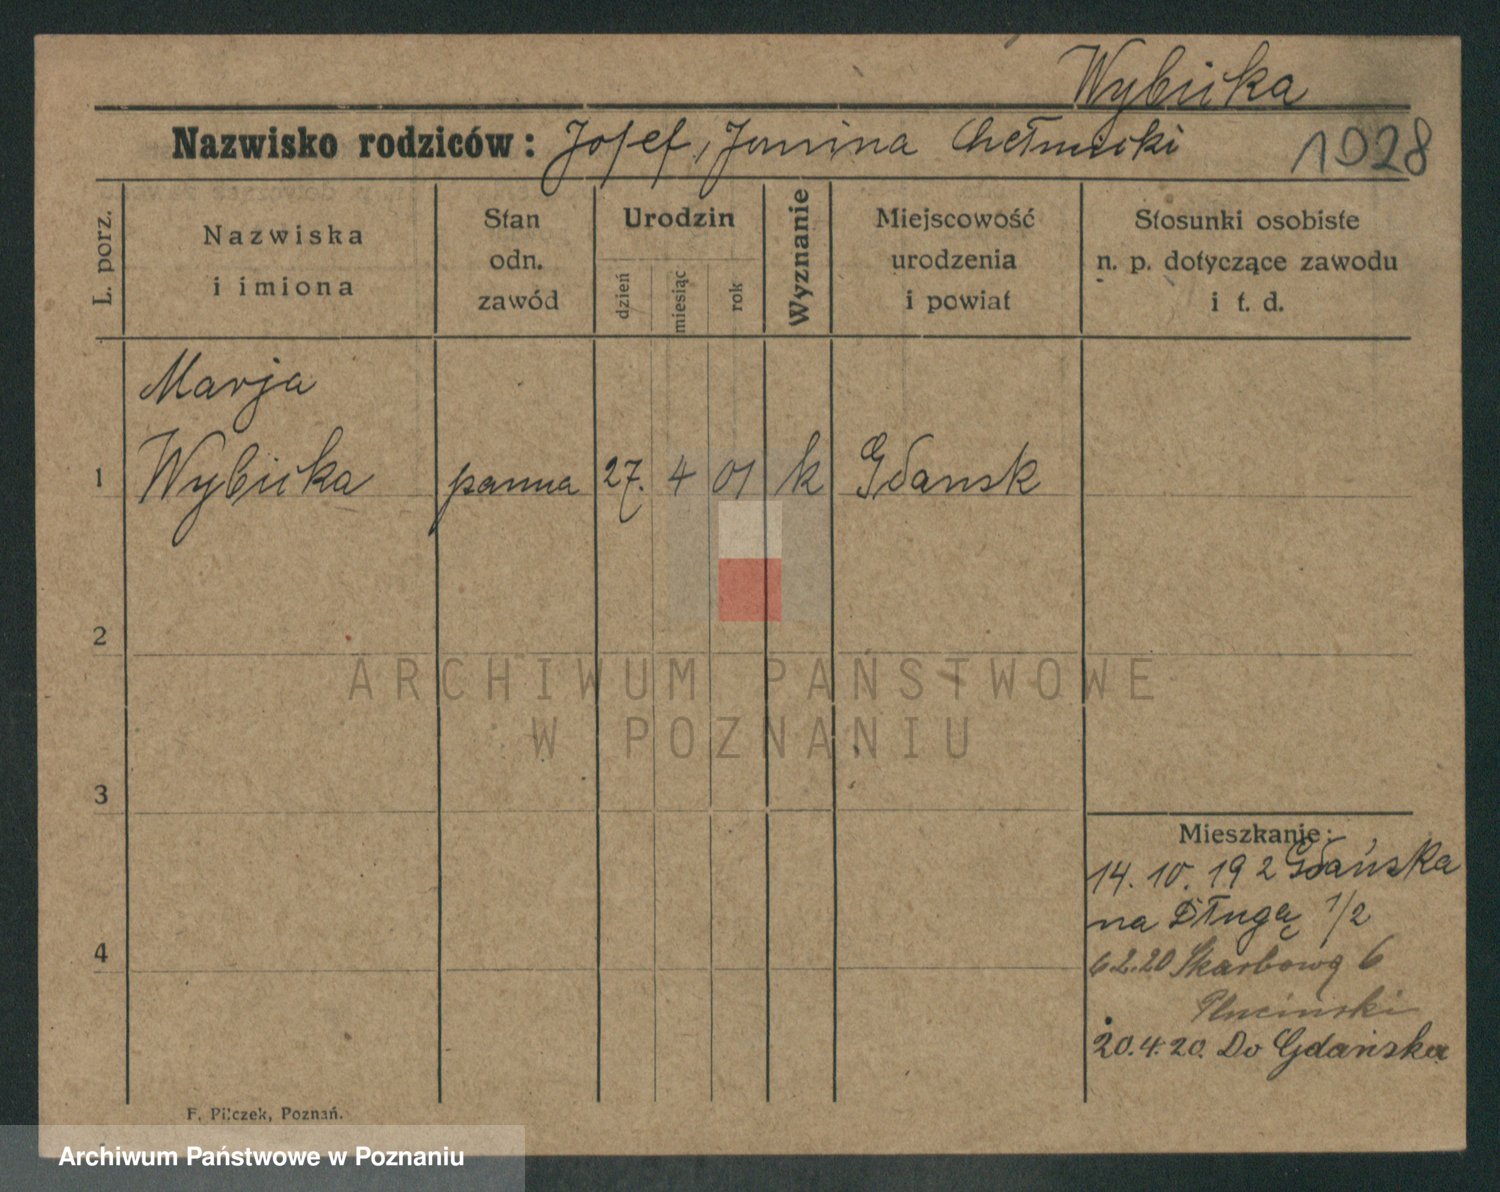 Wybicka
Nazwisko rodziców: Josef, Janina Chełmicki
1928
L. porz.
Nazwiska
i imiona
Stan
odn.
zawód
Urodzin
dzień
miesiąc
rok
Wyznanie
Miejscowość
urodzenia
i powiat
Stosunki osobiste
n. p. dotyczące zawodu
i t. d.
Marja
1 Wybicka panna 27. 4 01 k Gdansk
2
3
4
ARCHIWUM PAŃSTWOWE
W POZNANIU
Mieszkanie:
14. 10. 19 z Gdańska
na Długą 1/2
6.2.20 Skarbową 6
Pluciński
20.4.20. Do Gdańska
F. Pilczek, Poznań.
Archiwum Państwowe w Poznaniu